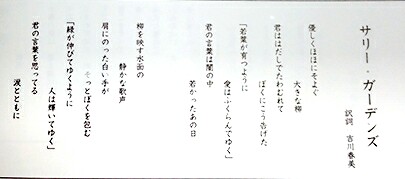 サリー・ガーデンズ
訳詞 吉川春美
優しくほほにそよぐ
大きな柳
君ははだしでたわむれて
ぼくにこう告げた
「若葉が育つように
愛はふくらんでゆく」
君の言葉は闇の中
若かったあの日
柳を映す水面の
静かな歌声
肩にのった白い手が
そっとぼくを包む
「緑が伸びてゆくように
人は輝いてゆく」
君の言葉を思ってる
涙とともに